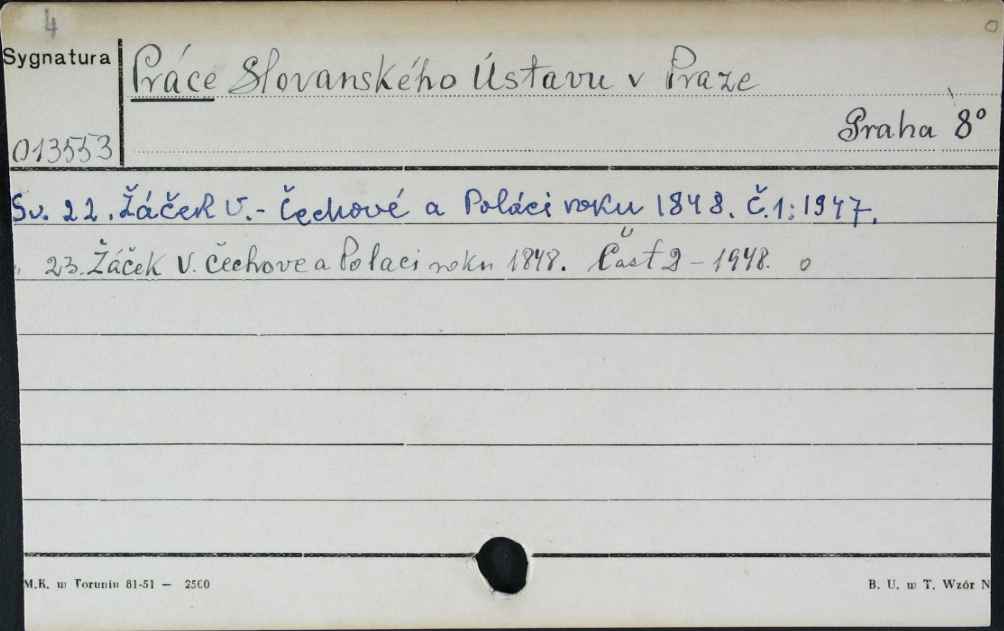 4
Sygnatura
Práce Slovanského Ústavu v Praze
013553
Praha 8°
Sv. 22. Žáček V. - Čechové a Poláci roku 1848. Č.1: 1947.
23. Žáček V. Čechove a Polaci roku 1848. Část 2 - 1948. o
M.K. w Toruniu 81-51 — 2500
B. U. w T. Wzór N